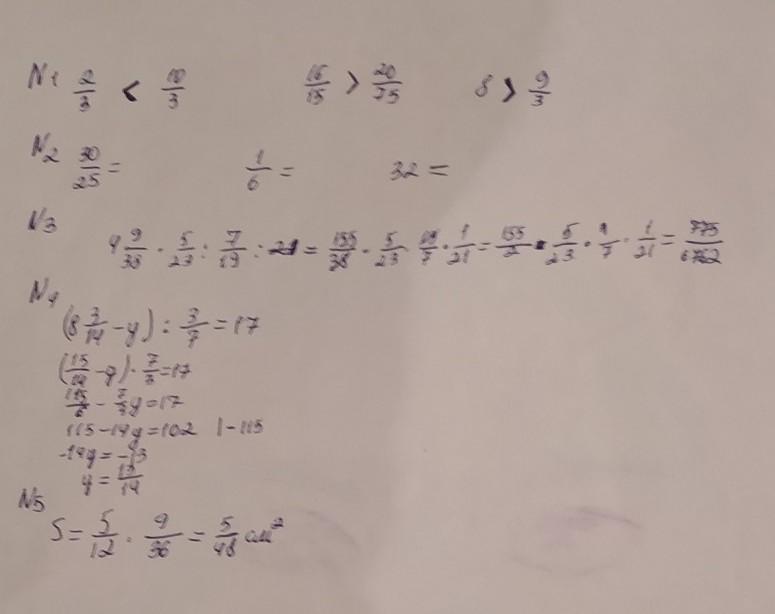 N1 2/3 < 10/3    16/15 > 20/75    8 > 9/3
N2 30/25 =    1/6 =    32 =
N3 4 9/38 · 5/23 : 7/19 : 21 = 155/38 · 5/23 · 19/7 · 1/21 = 155/2 · 5/23 · 1/7 · 1/21 = 775/6762
N4
(8 3/14 - y) : 3/7 = 17
(115/14 - y) · 7/3 = 17
115/6 - 7/3 y = 17
115 - 14y = 102 | - 115
-14y = -13
y = 13/14
N5
S = 5/12 · 9/36 = 5/48 см²